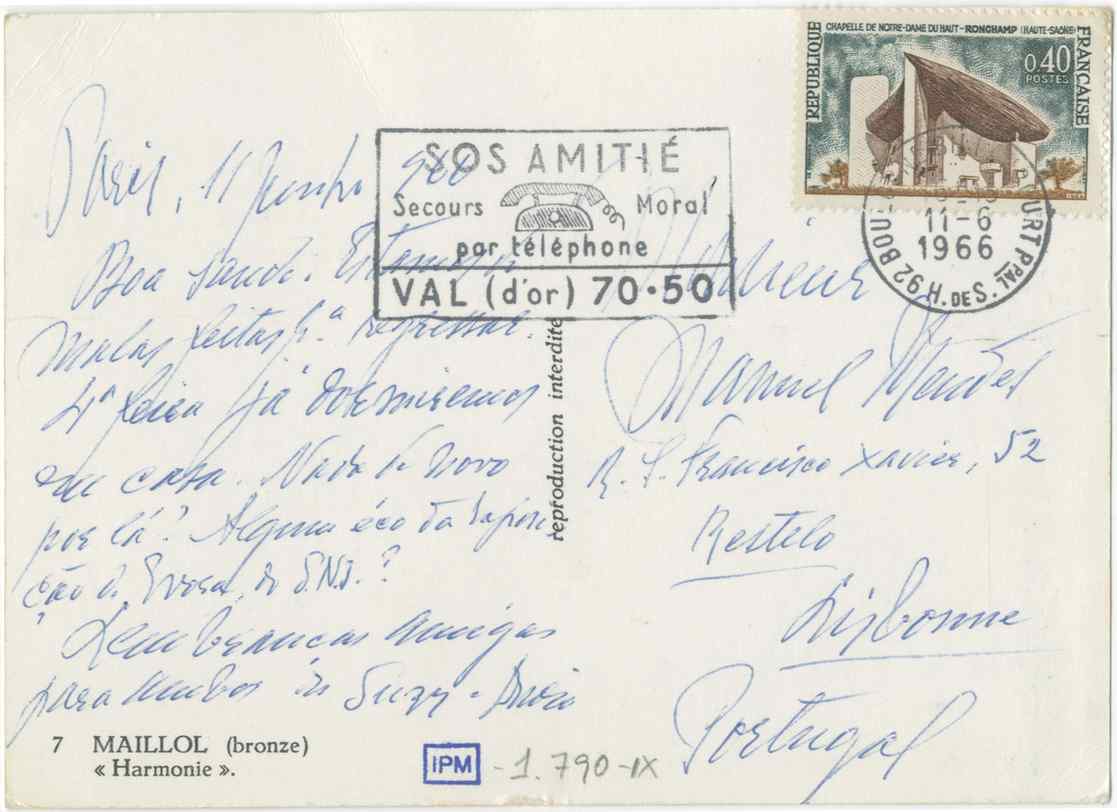 RÉPUBLIQUE FRANÇAISE
CHAPELLE DE NOTRE-DAME DU HAUT - RONCHAMP (HAUTE-SAÔNE)
0,40
POSTES
SOS AMITIÉ
Secours Moral
par téléphone
VAL (d'or) 70•50
11-6
1966
92 H. DE S.
PPAL
Paris, 11 Junho 966
Boa saude.
Malas feitas p.ª regressar.
4ª feira já dormiremos
em casa. Nada de novo
por lá? Algum éco da exposi-
ção de Evora, do S.N.I.?
Lembranças amigas
para ambos de Suzy - Dório
Monsieur
Manuel Mendes
R. S. Francisco Xavier, 52
Restelo
Lisbonne
Portugal
reproduction interdite
7 MAILLOL (bronze)
« Harmonie ».
IPM - 1.790-IX